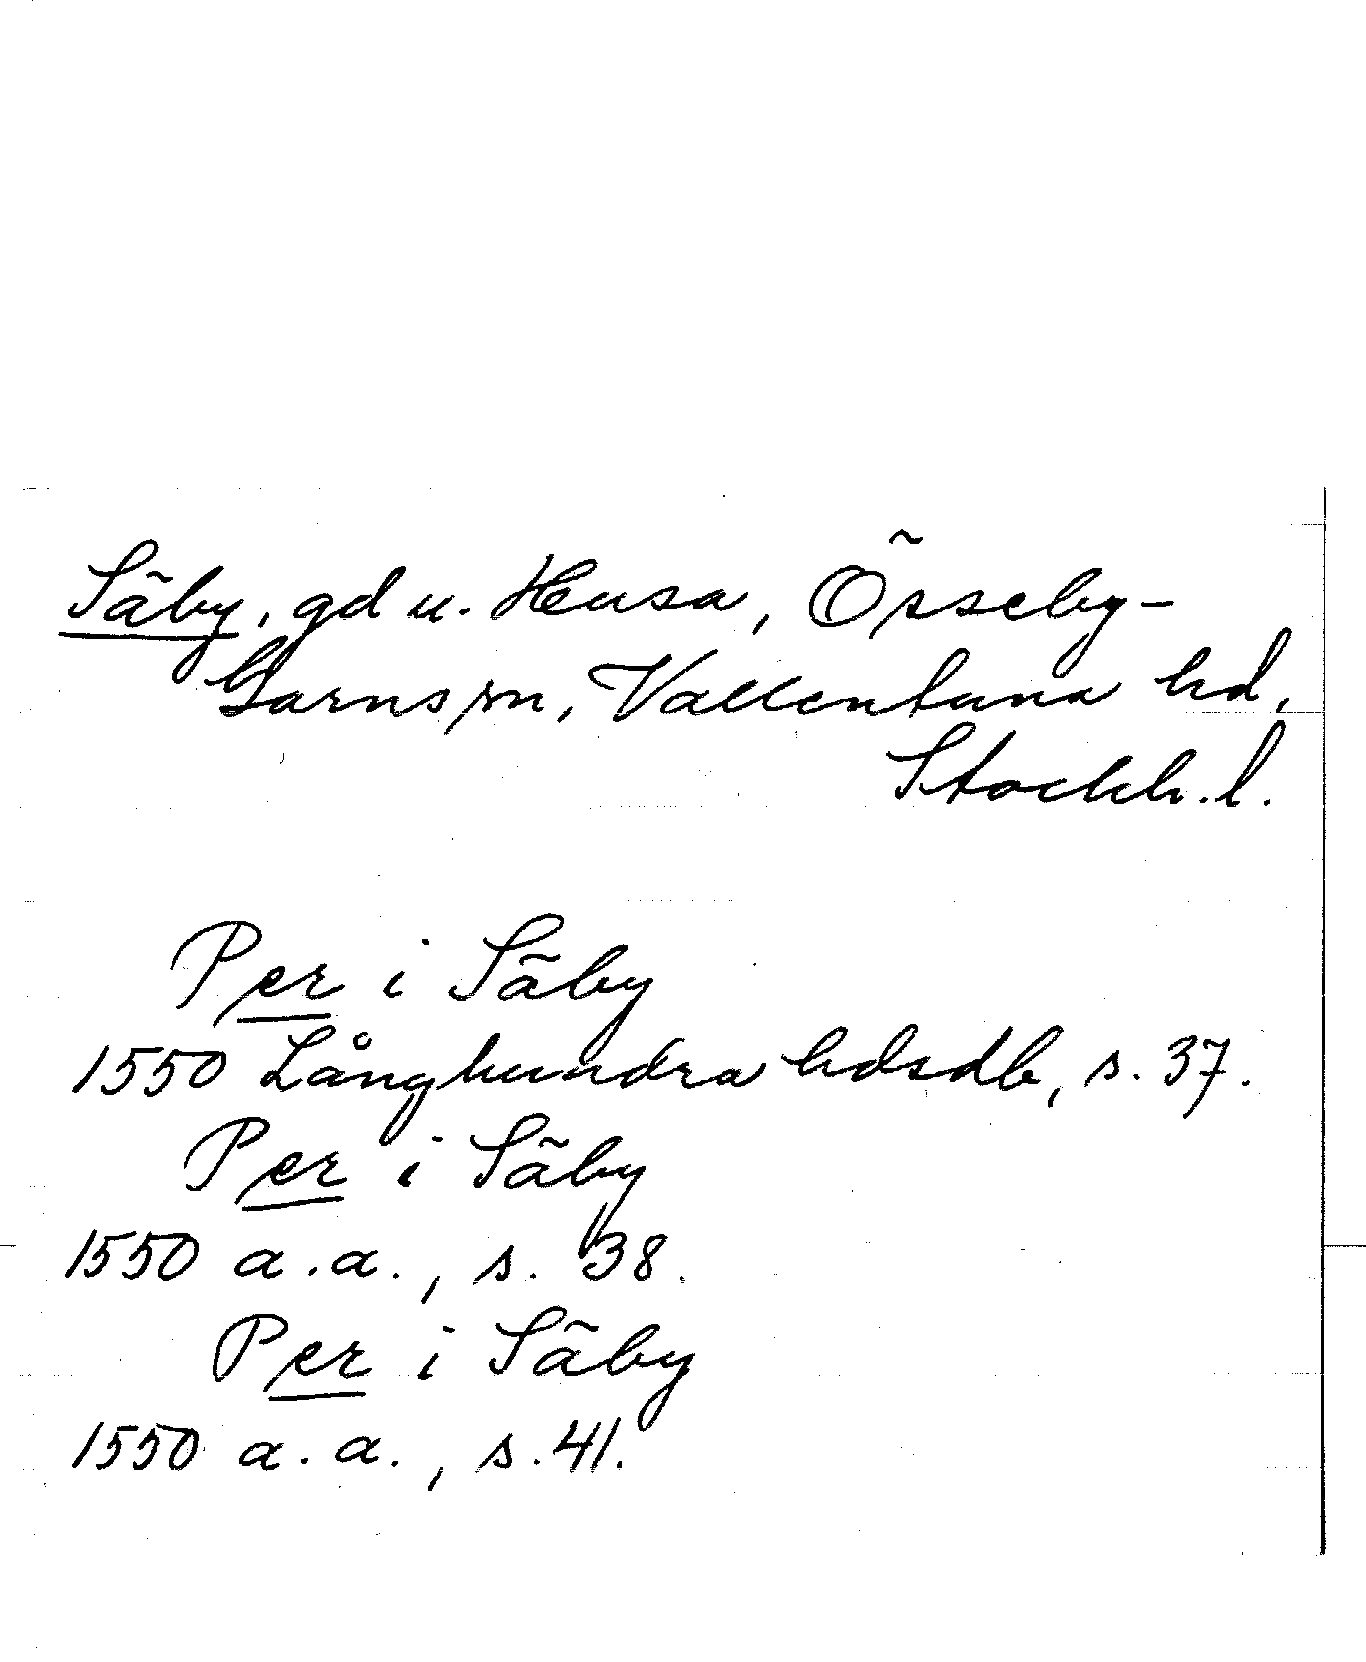 Säby, gd u. Husa, Össeby-
Garns sn, Vallentuna hd,
Stockh. l.
Per i Säby
1550 Långhundra hdsdb, s. 37.
Per i Säby
1550 a.a., s. 38.
Per i Säby
1550 a.a., s. 41.